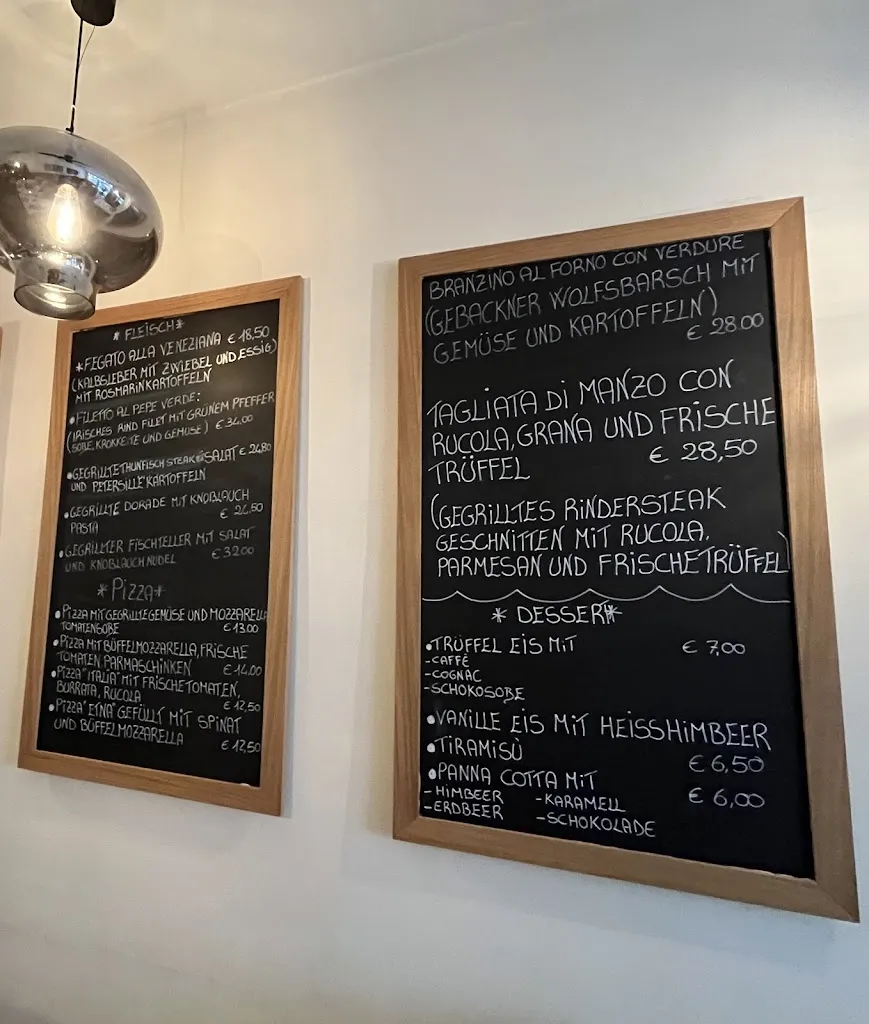 * FLEISCH *
*FEGATO ALLA VENEZIANA € 18,50
(KALBSLEBER MIT ZWIEBEL UND ESSIG)
MIT ROSMARINKARTOFFELN
•FILETTO AL PEPE VERDE:
(IRISCHES RIND FILET MIT GRÜNEM PFEFFER
SOßE, KROKKETTE UND GEMÜSE) € 34,00
•GEGRILLTE THUNFISCH STEAK SALAT € 24,80
UND PETERSILLE KARTOFFELN
•GEGRILLTE DORADE MIT KNOBLAUCH
PASTA € 24,50
•GEGRILLTER FISCHTELLER MIT SALAT
UND KNOBLAUCH NUDEL € 32,00
*Pizza*
•PIZZA MIT GEGRILLTE GEMÜSE UND MOZZARELLA
TOMATENSOßE € 13,00
•PIZZA MIT BÜFFELMOZZARELLA, FRISCHE
TOMATEN PARMASCHINKEN € 14,00
•PIZZA "ITALIA" MIT FRISCHE TOMATEN,
BURRATA, RUCOLA € 12,50
•PIZZA "ETNA" GEFÜLLT MIT SPINAT
UND BÜFFELMOZZARELLA € 12,50
BRANZINO AL FORNO CON VERDURE
(GEBACKNER WOLFSBARSCH MIT
GEMÜSE UND KARTOFFELN)
€ 28.00
TAGLIATA Di MANZO CON
RUCOLA, GRANA UND FRISCHE
TRÜFFEL € 28,50
(GEGRILLTES RINDERSTEAK
GESCHNITTEN MIT RUCOLA,
PARMESAN UND FRISCHE TRÜFFEL)
* DESSERT*
•TRÜFFEL EIS MIT € 7,00
-CAFFÉ
-COGNAC
-SCHOKOSOßE
•VANILLE EIS MIT HEISSHIMBEER
•TIRAMISÙ € 6,50
•PANNA COTTA MIT € 6,00
-HIMBEER -KARAMELL
-ERDBEER -SCHOKOLADE